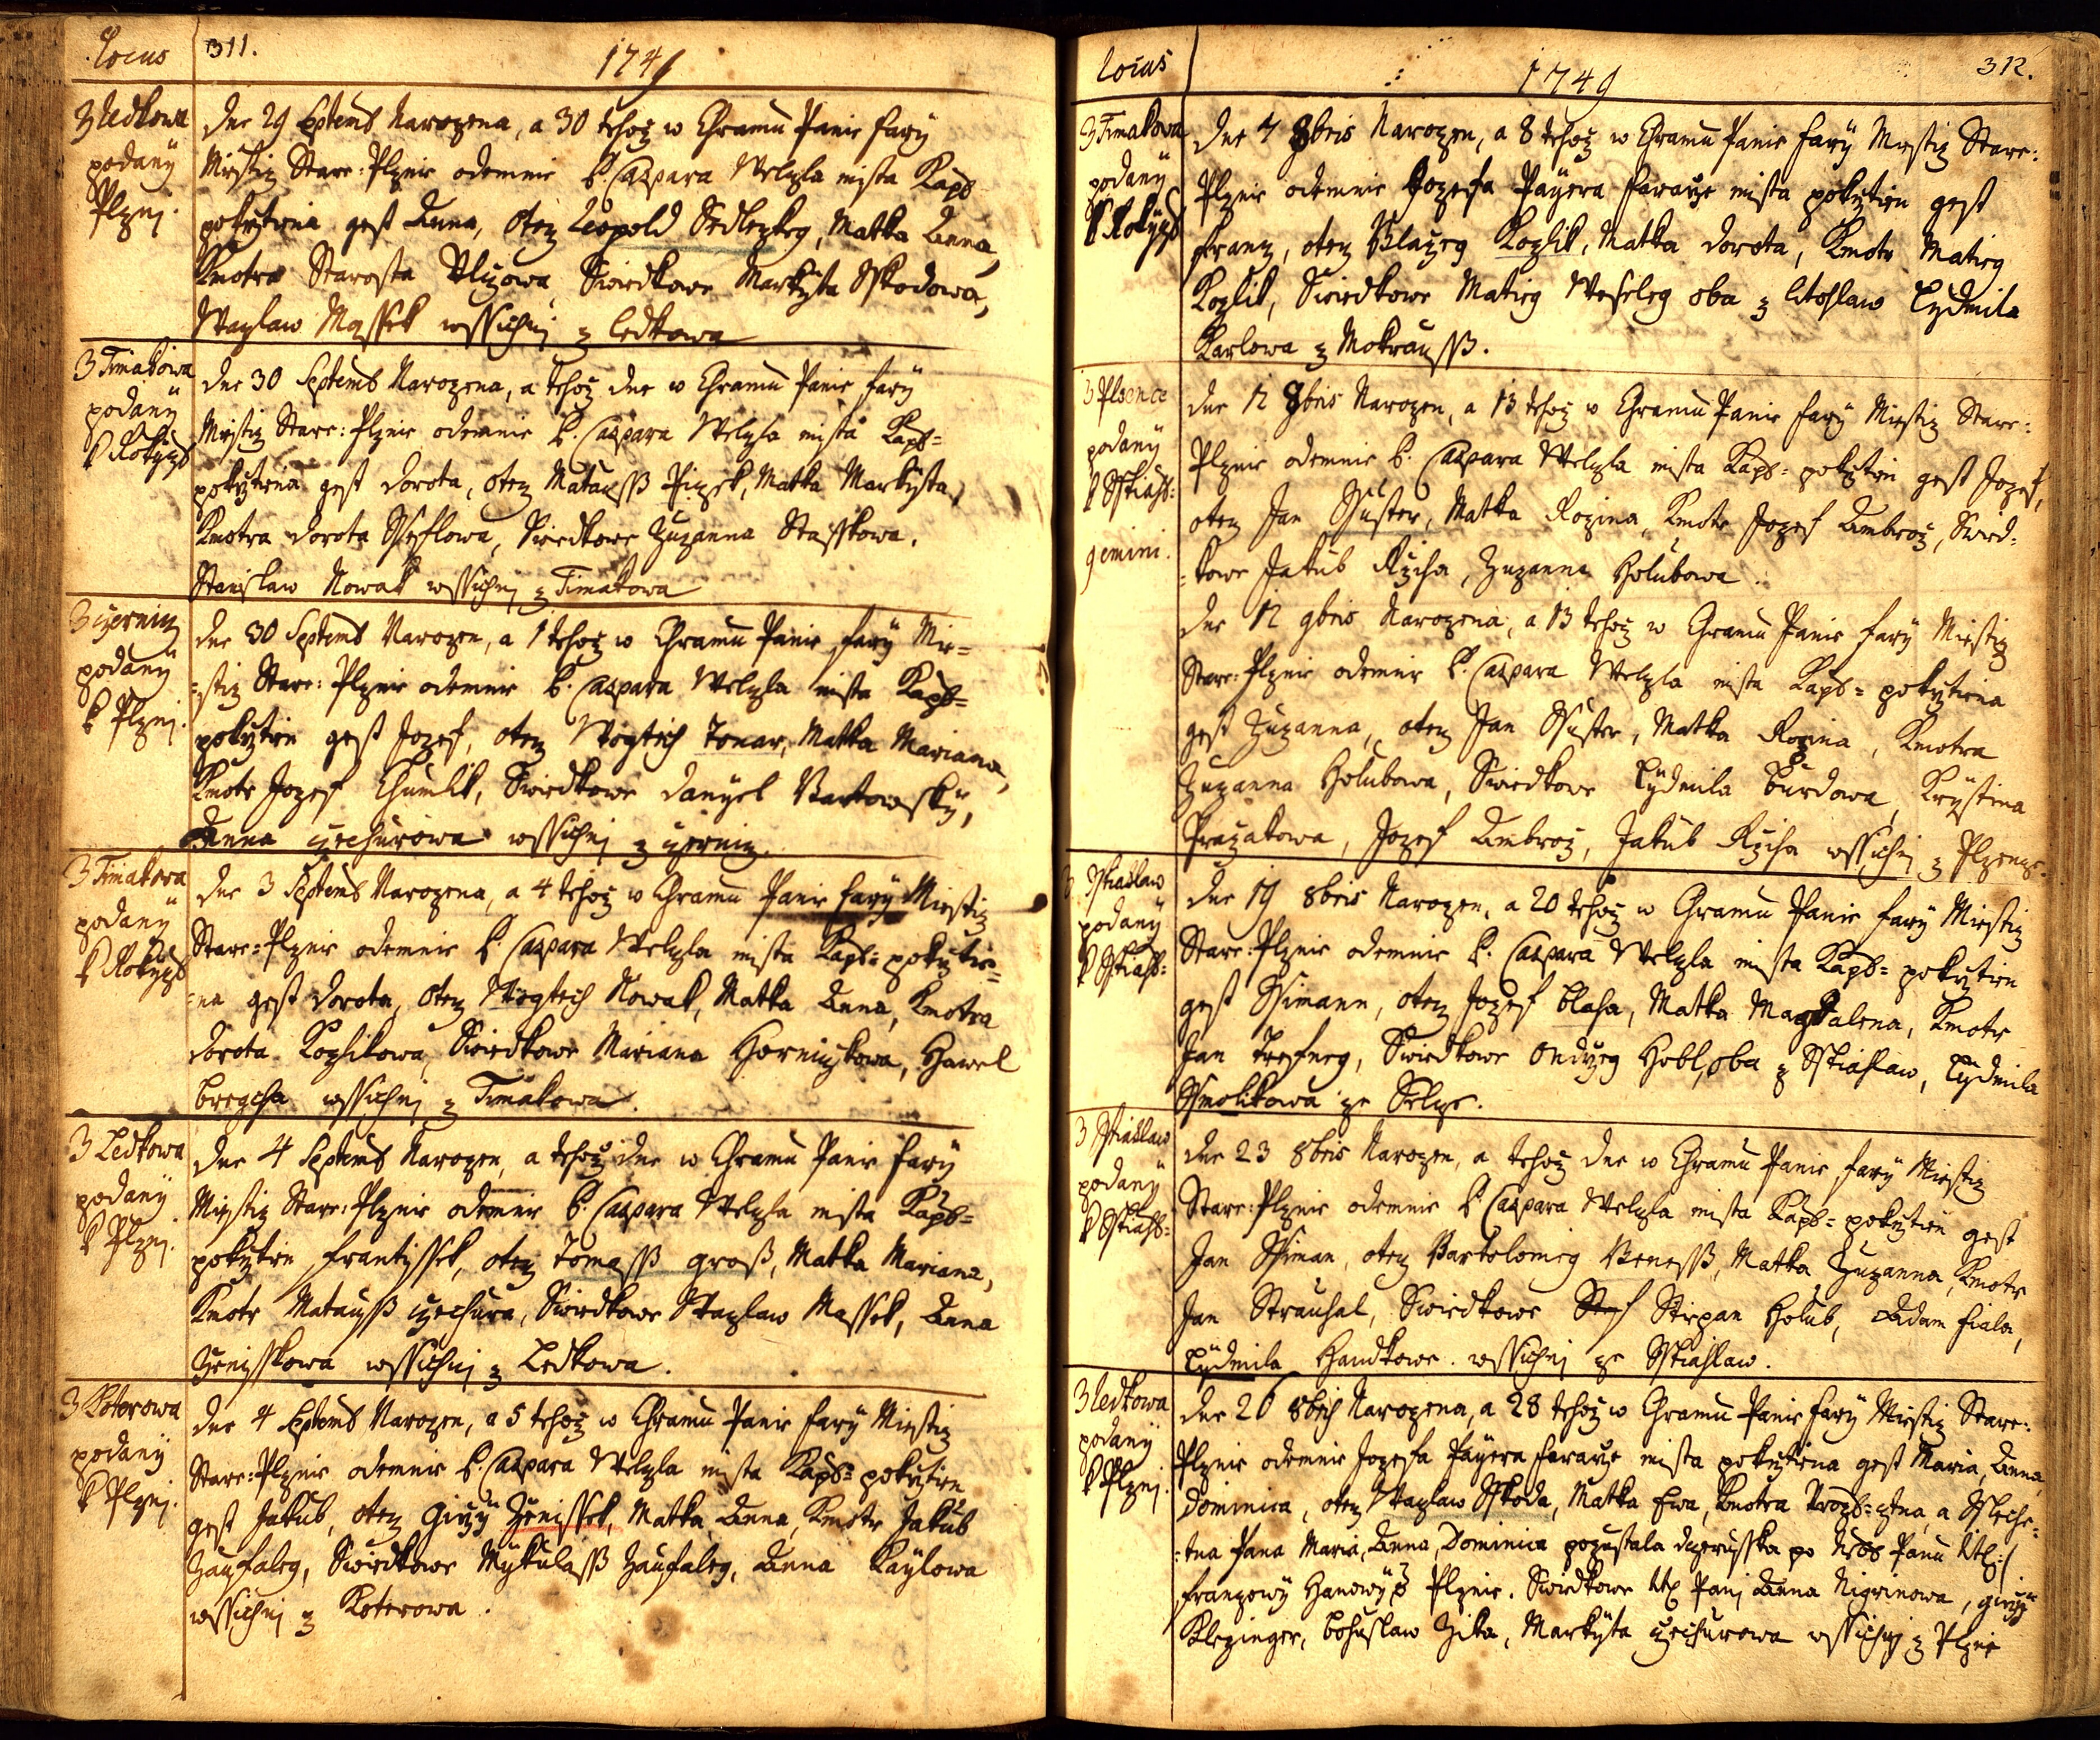 Locus 311. 1749
Z Ledkowa
podaný
Plznj.
dne 29 Septemb Narozena, a 30 tehoz w Chramu Panie fary
Miestiz Stare: Plznie odemnie P. Caspara Welzla mista Kapl
pokrztiena gest Anna, otez Leopold Sedlezkeg, Matka Anna,
Kmotra Starosta Ulizowa, Swiedkowe Markyta Sskodowa,
Wazlaw Massek wssichnj z Ledkowa
Z Timakowa
podaný
k Rokyz
dne 30 Septemb Narozena, a tehoz dne w Chramu Panie fary
Miestiz Stare: Plznie odemnie P. Caspara Welzla mista Kapl=
pokrztiena gest Dorota, otez Matauss Pizek, Matka Markyta,
Kmotra Dorota Sseflowa, Swiedkowe Zuzanna Stasskowa,
Stanislaw Nowak wssichnj z Timakowa
Z czerniz
podaný
k Plznj.
dne 30 Septemb Narozen, a 1 tehoz w Chramu Panie fary Mie=
=stiz Stare: Plznie odemnie P. Caspara Welzla mista Kapl=
pokrztien gest Jozef, otez Wogtich Tonar, Matka Mariana,
Kmotr Jozef Chumlik, Swiedkowe Danyel Bartowsky,
Anna czechurowa wssichnj z czerniz.
Z Timakowa
podaný
k Rokyz
dne 3 Septemb Narozena, a 4 tehoz w Chramu Panie fary Miestiz
Stare: Plznie odemnie P. Caspara Welzla mista Kapl= pokrztie=
=na gest Dorota, otez Wogtich Nowak, Matka Anna, Kmotra
Dorota Kozlikowa, Swiedkowe Mariana Horniczkowa, Hawel
Bregcha wssichnj z Timakowa.
Z Ledkowa
podaný
k Plznj.
dne 4 Septemb Narozen, a tehoz dne w Chramu Panie fary
Miestiz Stare: Plznie odemnie P. Caspara Welzla mista Kapl=
pokrztien Frantissek, otez Tomass Groß, Matka Mariana,
Kmotr Matauss czechura, Swiedkowe Wazlaw Massek, Anna
Zenisskowa wssichnj z Ledkowa.
Z Koterowa
podaný
k Plznj.
dne 4 Septemb Narozen, a 5 tehoz w Chramu Panie fary Miestiz
Stare: Plznie odemnie P. Caspara Welzla mista Kapl= pokrztien
gest Jakub, otez Girzy Zenissek, Matka Anna, Kmotr Jakub
Zaufaleg, Swiedkowe Mykulass Zaufaleg, Anna Kaylowa
wssichnj z Koterowa.
Locus 1749 312.
Z Timakowa
podaný
k Rokyz
dne 7 8bris Narozen, a 8 tehoz w Chramu Panie fary Miestiz Stare:
Plznie odemnie Jozefa Payera Faraze mista pokrztien gest
Franz, otez Blazeg Kozlik, Matka Dorota, Kmotr Matieg
Kozlik, Swiedkowe Matieg Weseleg oba z Litohlaw Lydmila
Karlowa z Mokrauss.
Z Plzence
podaný
k Sstiahl:
gemini.
dne 12 8bris Narozen, a 13 tehoz w Chramu Panie fary Miestiz Stare:
Plznie odemnie P. Caspara Welzla mista Kapl= pokrztien gest Jozef,
otez Jan Ssuster, Matka Rozina, Kmotr Jozef Ambroz, Swied:
=kowe Jakub Rziha, Zuzanna Holubowa.
dne 12 8bris Narozena, a 13 tehoz w Chramu Panie fary Miestiz
Stare: Plznie odemnie P. Caspara Welzla mista Kapl= pokrztiena
gest Zuzanna, otez Jan Ssuster, Matka Rozina, Kmotra
Zuzanna Holubowa, Swiedkowe Lydmila Burdowa, Krystina
Prazakowa, Jozef Ambroz, Jakub Rziha wssichnj z Plzence.
Z Sstiahlaw
podaný
k Sstiahl:
dne 19 8bris Narozen, a 20 tehoz w Chramu Panie fary Miestiz
Stare: Plznie odemnie P. Caspara Welzla mista Kapl= pokrztien
gest Ssimann, otez Jozef Blaha, Matka Magdalena, Kmotr
Jan Trefneg, Swiedkowe Ondrzeg Hobl, oba z Sstiahlaw, Lydmila
Ssmolikowa ze Selze.
Z Sstiahlaw
podaný
k Sstiahl=
dne 23 8bris Narozen, a tehoz dne w Chramu Panie fary Miestiz
Stare: Plznie odemnie P. Caspara Welzla mista Kapl= pokrztien gest
Jan Ssiman, otez Bartolomeg Beness, Matka Zuzanna, Kmotr
Jan Strauhal, Swiedkowe Stiepan Holub, Adam Fiala,
Lydmila Handkowe. wssichnj ze Sstiahlaw.
Z Ledkowa
podaný
k Plznj.
dne 26 8bris Narozena, a 28 tehoz w Chramu Panie fary Miestiz Stare:
Plznie odemnie Jozefa Payera Faraze mista pokrztiena gest Maria, Anna,
Dominica, otez Wazlaw Sskoda, Matka Ewa, Kmotra Urozena, a Sslechet=
=tna Pana Maria, Anna, Dominica pozustala dzerusska po Neb Panu
Franzowy Hanowy z Plznie. Swiedkowe Panj Anna Nigrinowa, Girzy
Klezinger, Bohuslaw Zika, Markyta czechurowa wssichnj z Plznie